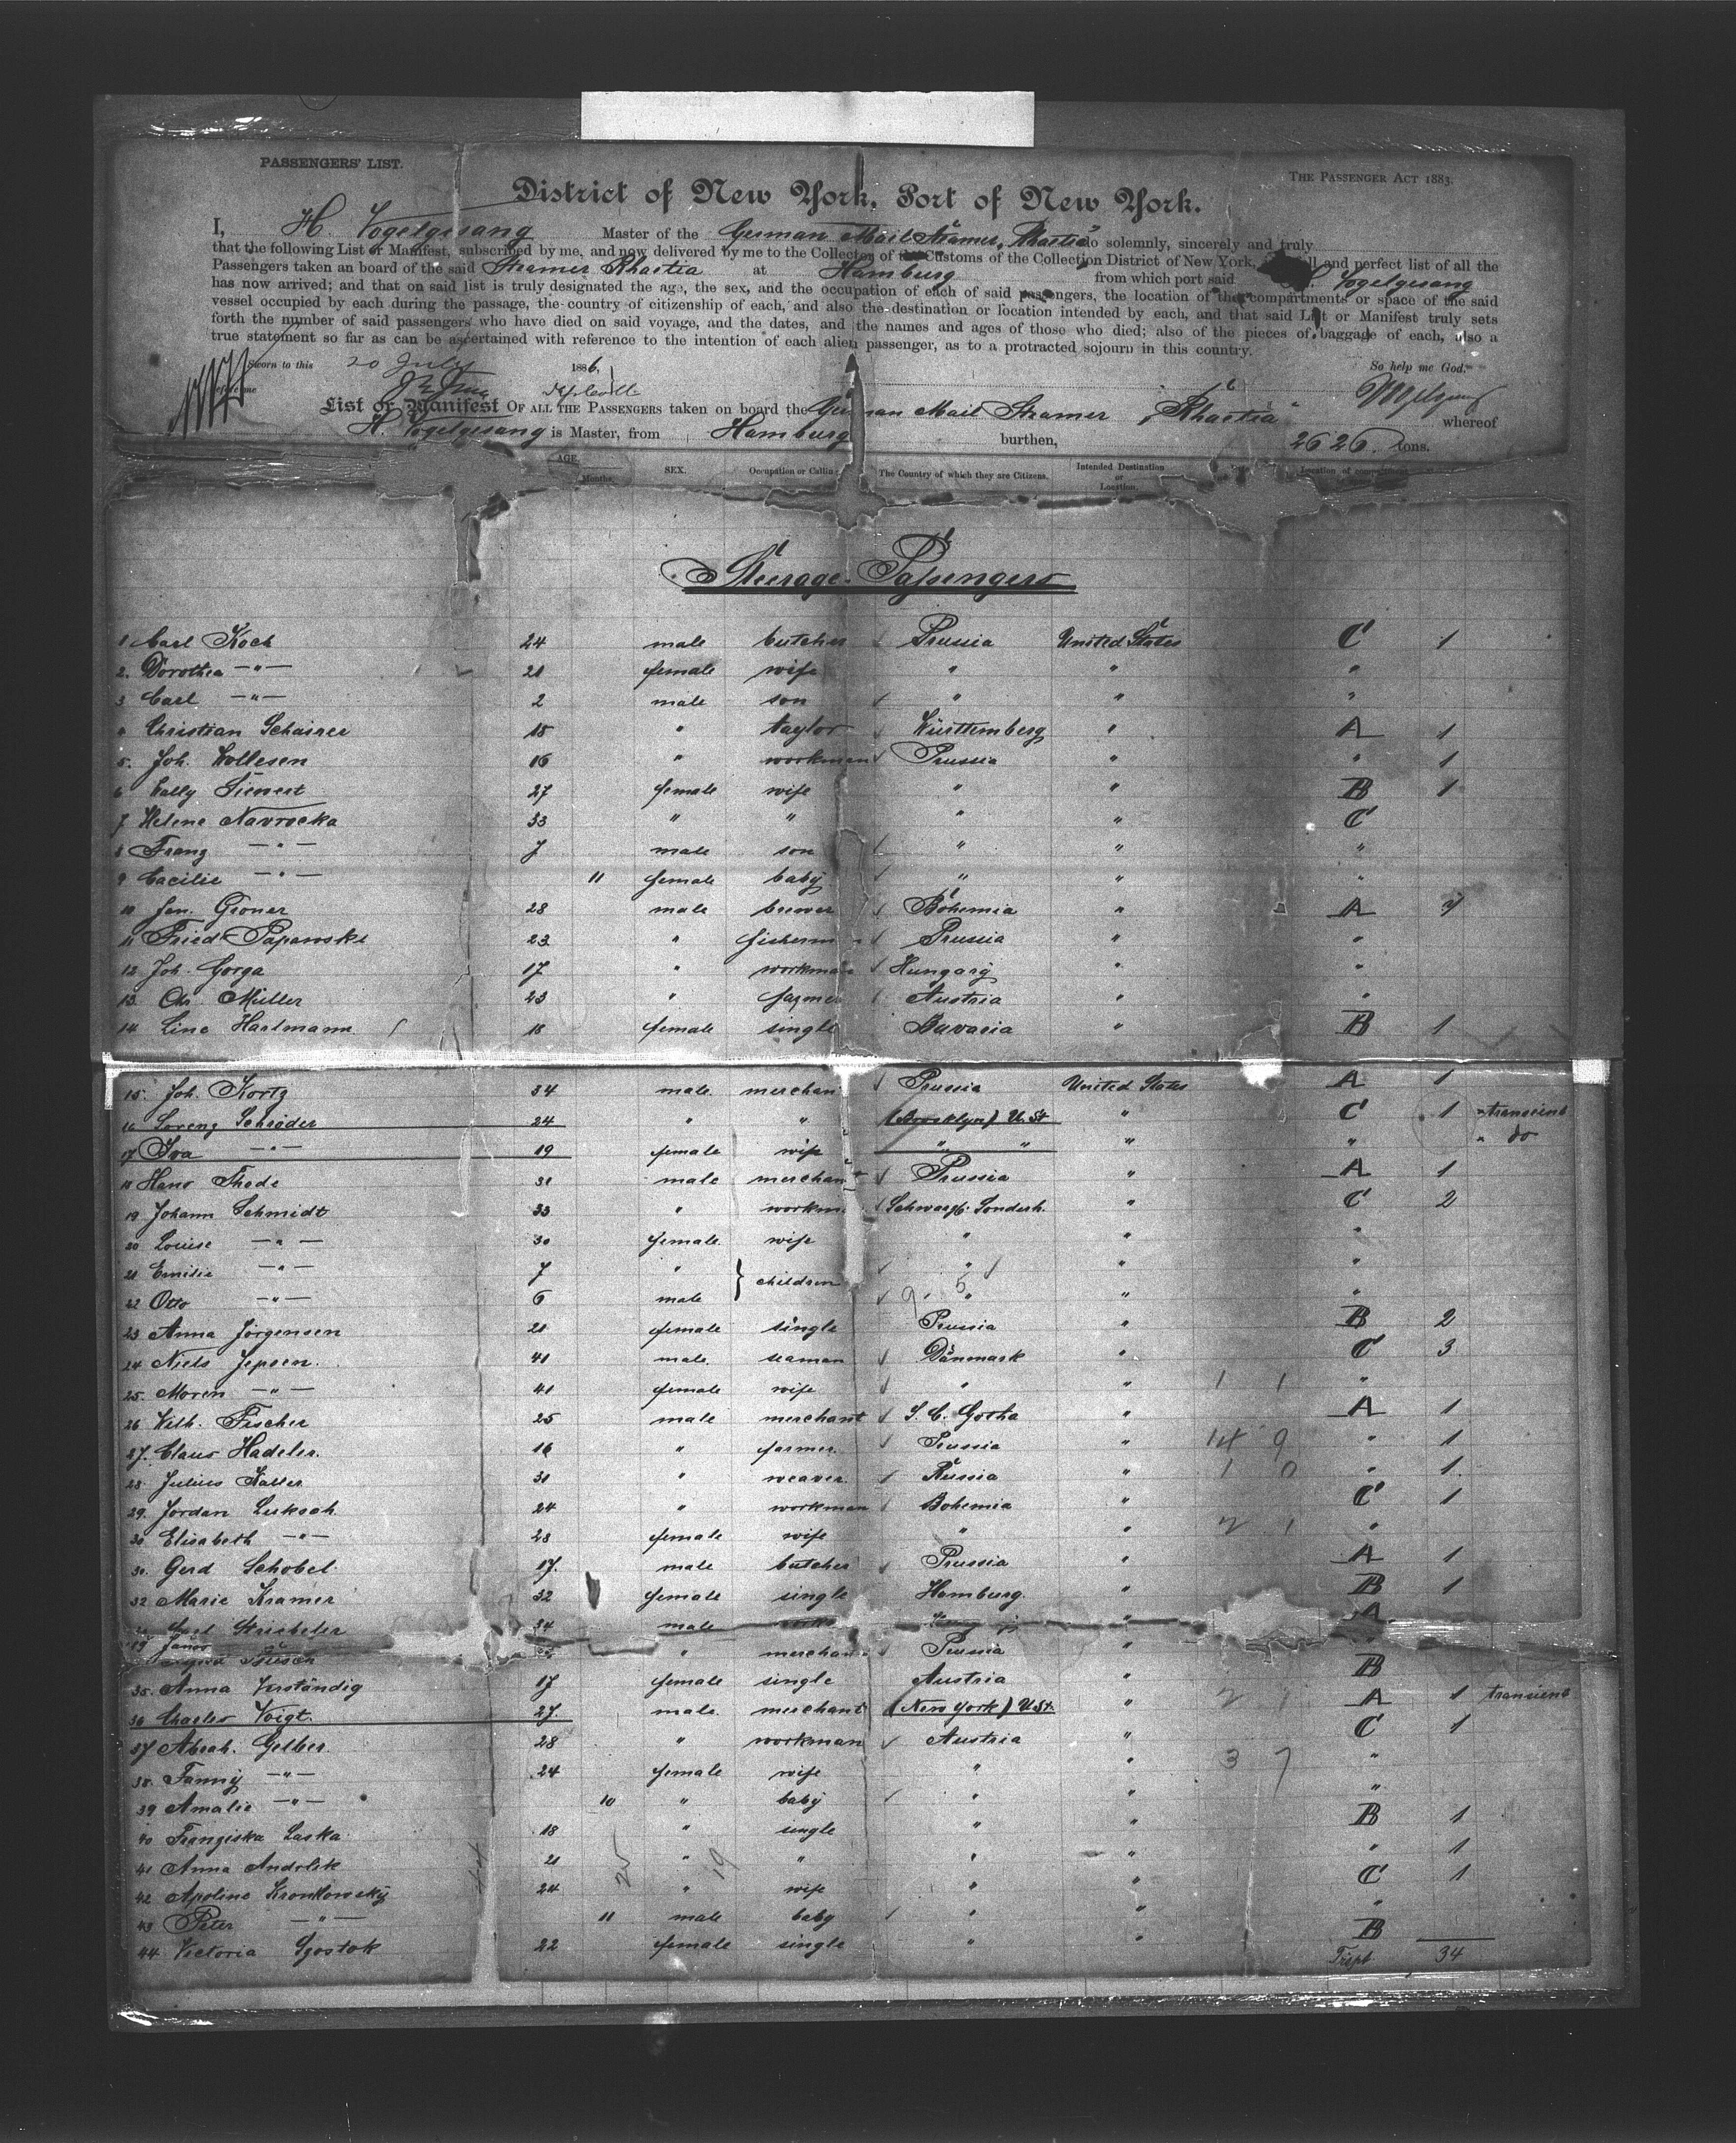 PASSENGERS' LIST.
THE PASSENGER ACT 1883.
District of New York, Port of New York.
I, H. Vogelgesang Master of the German Mail Steamer "Rhaetia" do solemnly, sincerely and truly
that the following List or Manifest, subscribed by me, and now delivered by me to the Collector of the Customs of the Collection District of New York, full and perfect list of all the
Passengers taken an board of the said Steamer Rhaetia at Hamburg from which port said Vogelgesang
has now arrived; and that on said list is truly designated the age, the sex, and the occupation of each of said passengers, the location of the compartments or space of the said
vessel occupied by each during the passage, the country of citizenship of each, and also the destination or location intended by each, and that said List or Manifest truly sets
forth the number of said passengers who have died on said voyage, and the dates, and the names and ages of those who died; also of the pieces of baggage of each, also a
true statement so far as can be ascertained with reference to the intention of each alien passenger, as to a protracted sojourn in this country.
Sworn to this 20 July 1886, So help me God.
before me
List or Manifest OF ALL THE PASSENGERS taken on board the German Mail Steamer "Rhaetia" whereof
H. Vogelgesang is Master, from Hamburg burthen, 2626. tons.
AGE. Months. SEX. Occupation or Calling The Country of which they are Citizens. Intended Destination or Location. Location of
Steerage-Passengers
1 Carl Koch 24 male butcher Prussia United States C 1
2. Dorothea -"- 21 female wife " " "
3 Carl -"- 2 male son " " "
4 Christian Schairer 18 " taylor Württemberg " A 1
5. Joh. Wollesen 16 " workman Prussia " " 1
6 Wally Sienert 27 female wife " " B 1
7 Helene Navrocka 33 " " " " C
8 Franz -"- 7 male son " " "
9 Cacilie -"- 11 female baby " " "
10 Jan. Groner 28 male brewer Bohemia " A
11 Fried Papenski 23 " fisherm Prussia " "
12 Joh. Gorga 17 " workman Hungary " "
13. Chr. Müller 23 " farmer Austria " "
14 Line Hartmann 18 female single Bavaria " B 1
15. Joh. Kortz 34 male merchan Prussia United States A 1
16 Lorenz Schröder 24 " " (Brooklyn) U. St. " C 1 transient
17 Iva -"- 19 female wife " " " " " do
18 Hans Thede 31 male merchant Prussia " A 1
19 Johann Schmidt 33 " workm. Schwarzb. Sondersh. " C 2
20 Louise -"- 30 female wife " " "
21 Emilie -"- 7 " } children " " "
22 Otto -"- 6 male " " "
23 Anna Jörgensen 21 female single Prussia " B 2
24 Niels Jepsen. 41 male seaman Dänmark " C 3
25. Moren -"- 41 female wife " " 1 1 "
26 Wilh. Fischer 25 male merchant S. C. Gotha " A 1
27. Claus Hadeler. 16 " farmer. Prussia " 14 9 " 1
28 Julius Kaller 31 " weaver. Russia " 1 0 " 1.
29. Jordan Luksch 24 " workman Bohemia " C 1
30 Elisabeth -"- 23 female wife " " 2 1 "
31. Gerd Schobel 17. male butcher Prussia " A 1
32 Marie Kramer 32 female single Hamburg. " B 1
Carl Striebeler 34 male " A
merchan Prussia "
35. Anna Verständig 17 female single Austria " B
36 Charles Voigt. 27. male merchant (New York) U.St. " 2 1 A 1 transient
37 Abrah. Gelber. 28 " workman Austria " C 1
38. Fanny -"- 24 female wife " " 3 7 "
39 Amalie -"- 10 " baby " " "
40 Franziska Laska 18 " single " " B 1
41 Anna Andrlik 21 " " " " " 1
42 Apoline Kronkowsky 24 " wife " " C 1
43 Peter -"- 11 male baby " " "
44 Victoria Sgostok 22 female single " " B
34